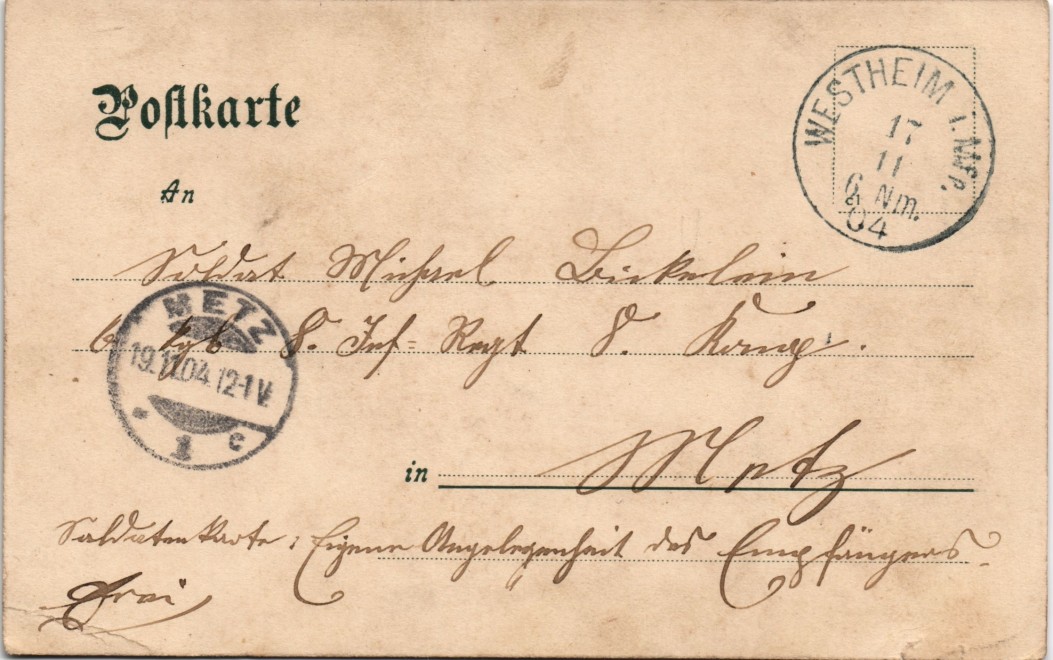 Postkarte
WESTHEIM i. Mfr.
17
11
6 Nm.
04
An
Soldat Michael Bickelein
6 kgb 8. Inf= Regt 8. Komp.
METZ
19.11.04.12-1V.
1 c
in Metz
Soldatenkarte: Eigene Angelegenheit des Empfängers.
Frei